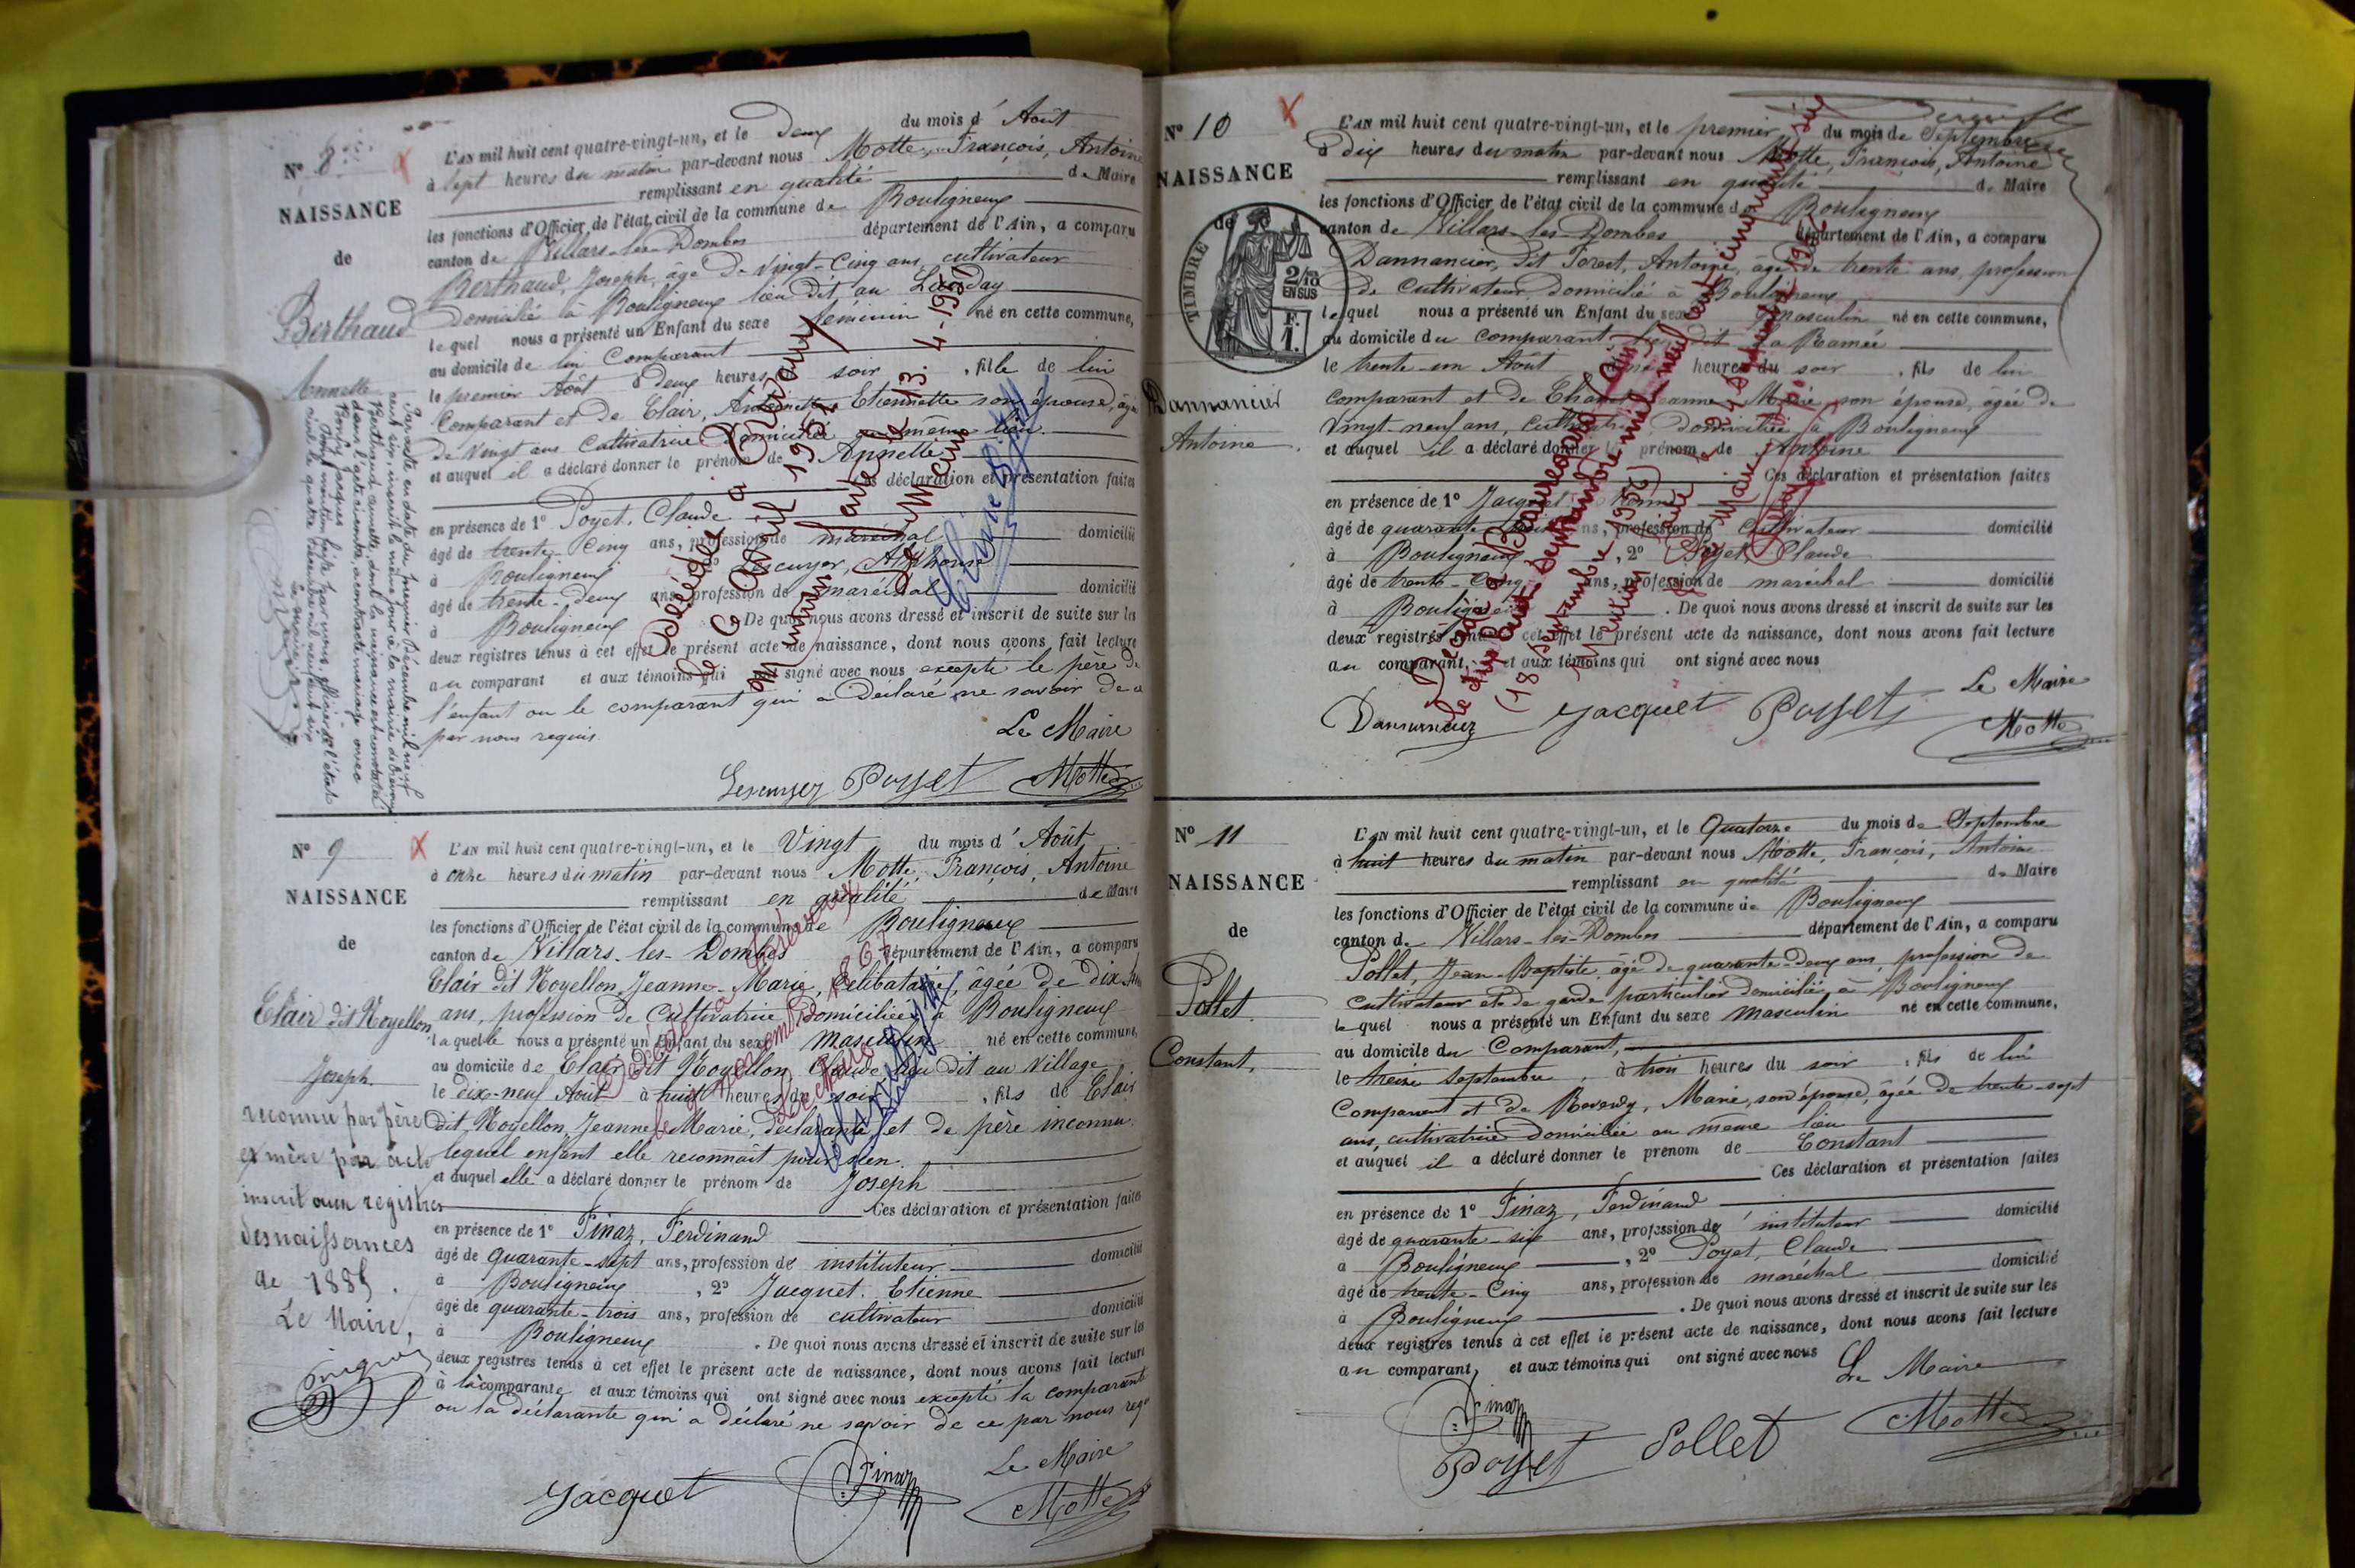 N° 8
NAISSANCE
de
Berthaud
Annette
L'AN mil huit cent quatre-vingt-un, et le Deux du mois d' Août
à sept heures du matin par-devant nous Motte, François, Antoine
remplissant en qualité de Maire
les fonctions d'Officier de l'état civil de la commune de Bouligneux
canton de Villars-les-Dombes département de l'Ain, a comparu
Berthaud Joseph, âgé de vingt-cinq ans, cultivateur
domicilié à Bouligneux lieu dit au
lequel nous a présenté un Enfant du sexe féminin né en cette commune,
au domicile de lui Comparant
le premier Août à deux heures soir, fille de lui
Comparant et de Clair, Etiennette son épouse, âgée
de Vingt ans Cultivatrice domiciliée au même lieu.
et auquel il a déclaré donner le prénom de Annette
Ces déclaration et présentation faites
en présence de 1° Poyet, Claude
âgé de trente-cinq ans, profession de maréchal domicilié
à Bouligneux, 2° Lescuyer, Alphonse
âgé de trente-deux ans, profession de maréchal domicilié
à Bouligneux. De quoi nous avons dressé et inscrit de suite sur les
deux registres tenus à cet effet le présent acte de naissance, dont nous avons fait lecture
au comparant et aux témoins qui ont signé avec nous excepté le père de
l'enfant ou le comparant qui a déclaré ne savoir de ce
par nous requis.
Le Maire
Lescuyer Poyet Motte
Décédée à
le 6 Avril 1951
Mention faite le 13-4-1951
Le Maire
N° 9
NAISSANCE
de
Clair dit Noyellon
Joseph.
reconnu par père
et mère par acte
inscrit aux registres
des naissances
de 1885.
Le Maire,
L'AN mil huit cent quatre-vingt-un, et le Vingt du mois d' Août
à onze heures du matin par-devant nous Motte, François, Antoine
remplissant en qualité de Maire
les fonctions d'Officier de l'état civil de la commune de Bouligneux
canton de Villars-les-Dombes département de l'Ain, a comparu
Clair dit Noyellon Jeanne-Marie, célibataire, âgée de dix-huit
ans, profession de Cultivatrice domiciliée à Bouligneux
laquelle nous a présenté un Enfant du sexe masculin né en cette commune,
au domicile de Clair dit Noyellon, Claude lieu dit au Village
le dix-neuf Août à huit heures du soir, fils de Clair
dit Noyellon, Jeanne-Marie, déclarante et de père inconnu.
lequel enfant elle reconnaît pour sien.
et auquel elle a déclaré donner le prénom de Joseph
Ces déclaration et présentation faites
en présence de 1° Finaz, Ferdinand
âgé de quarante-sept ans, profession de instituteur domicilié
à Bouligneux, 2° Jacquet, Etienne
âgé de quarante-trois ans, profession de cultivateur domicilié
à Bouligneux. De quoi nous avons dressé et inscrit de suite sur les
deux registres tenus à cet effet le présent acte de naissance, dont nous avons fait lecture
à la comparante et aux témoins qui ont signé avec nous excepté la comparante
ou la déclarante qui a déclaré ne savoir de ce par nous
Le Maire
Jacquet Finaz Motte
N° 10
NAISSANCE
de
TIMBRE
2/10
EN SUS
F.
1.
Dannancier
Antoine
L'AN mil huit cent quatre-vingt-un, et le premier du mois de Septembre
à dix heures du matin par-devant nous Motte, François, Antoine
remplissant en qualité de Maire
les fonctions d'Officier de l'état civil de la commune de Bouligneux
canton de Villars-les-Dombes département de l'Ain, a comparu
Dannancier, dit Forest, Antoine, âgé de trente ans, profession
de Cultivateur, domicilié à Bouligneux
lequel nous a présenté un Enfant du sexe masculin né en cette commune,
au domicile du comparant, lieu dit La Ramée
le trente-un Août heures du soir, fils de lui
comparant et de Jeanne Marie, son épouse, âgée de
Vingt-neuf ans, Cultivatrice, domiciliée à Bouligneux
et auquel il a déclaré donner le prénom de Antoine
Ces déclaration et présentation faites
en présence de 1° Jacquet Etienne
âgé de quarante-trois ans, profession de Cultivateur domicilié
à Bouligneux, 2° Poyet, Claude
âgé de trente-cinq ans, profession de maréchal domicilié
à Bouligneux. De quoi nous avons dressé et inscrit de suite sur les
deux registres tenus à cet effet le présent acte de naissance, dont nous avons fait lecture
au comparant, et aux témoins qui ont signé avec nous
Le Maire
Dannancier Jacquet Poyet Motte
Décédé à (Ain)
le dix huit septembre mil neuf cent cinquante six
(18 septembre 1956)
Mention faite le 24 septembre 1956
Le Maire
N° 11
NAISSANCE
de
Pollet
Constant.
L'AN mil huit cent quatre-vingt-un, et le Quatorze du mois de Septembre
à huit heures du matin par-devant nous Motte, François, Antoine
remplissant en qualité de Maire
les fonctions d'Officier de l'état civil de la commune de Bouligneux
canton de Villars-les-Dombes département de l'Ain, a comparu
Pollet, Jean-Baptiste, âgé de quarante-deux ans, profession de
cultivateur et de garde particulier domicilié à Bouligneux
lequel nous a présenté un Enfant du sexe masculin né en cette commune,
au domicile du Comparant,
le treize Septembre, à trois heures du soir, fils de lui
Comparant et de Marie, son épouse, âgée de trente-sept
ans, cultivatrice domiciliée au même lieu
et auquel il a déclaré donner le prénom de Constant
Ces déclaration et présentation faites
en présence de 1° Finaz, Ferdinand
âgé de quarante-six ans, profession de instituteur domicilié
à Bouligneux, 2° Poyet, Claude
âgé de trente-cinq ans, profession de maréchal domicilié
à Bouligneux. De quoi nous avons dressé et inscrit de suite sur les
deux registres tenus à cet effet le présent acte de naissance, dont nous avons fait lecture
au comparant, et aux témoins qui ont signé avec nous
Le Maire
Finaz
Poyet Pollet Motte